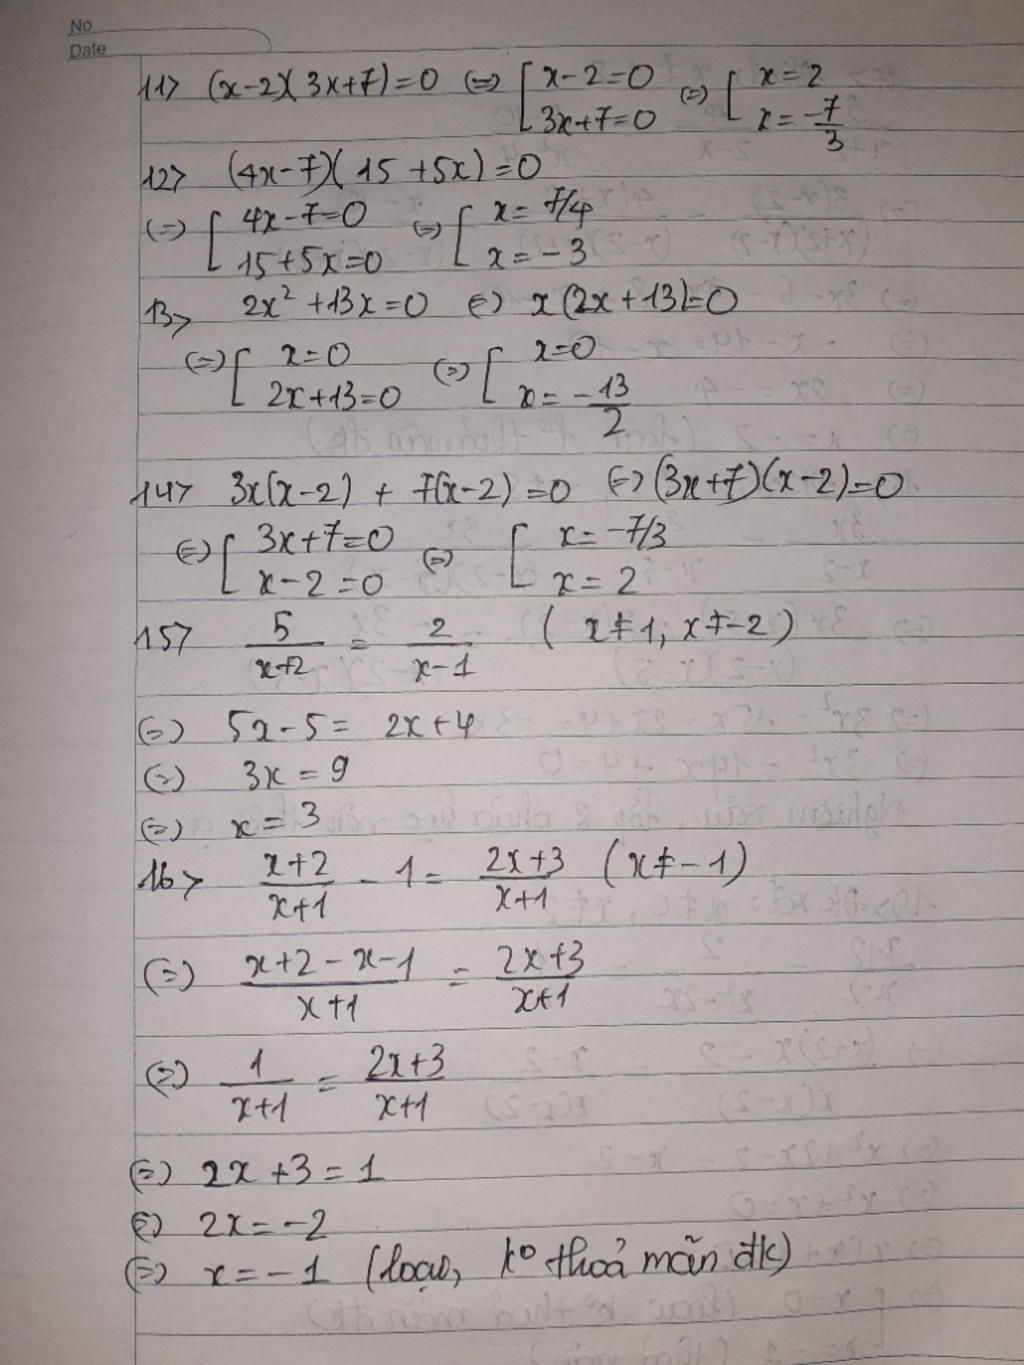 No
Date
11> (x-2)(3x+7)=0 (=) [ x-2=0 (=) [ x=2
3x+7=0 x=-7/3
12> (4x-7)(15+5x)=0
(=) [ 4x-7=0 (=) [ x=7/4
15+5x=0 x=-3
13> 2x² +13x=0 (=) x(2x+13)=0
(=) [ x=0 (=) [ x=0
2x+13=0 x=-13/2
14> 3x(x-2) + 7(x-2)=0 (=) (3x+7)(x-2)=0
(=) [ 3x+7=0 (=) [ x=-7/3
x-2=0 x=2
15> 5/(x+2) = 2/(x-1) (x≠1, x≠-2)
(=) 5x-5= 2x+4
(=) 3x=9
(=) x=3
16> (x+2)/(x+1) - 1= (2x+3)/(x+1) (x≠-1)
(=) (x+2-x-1)/(x+1) = (2x+3)/(x+1)
(=) 1/(x+1) = (2x+3)/(x+1)
(=) 2x+3=1
(=) 2x=-2
(=) x=-1 (loại, kº thoả mãn đk)